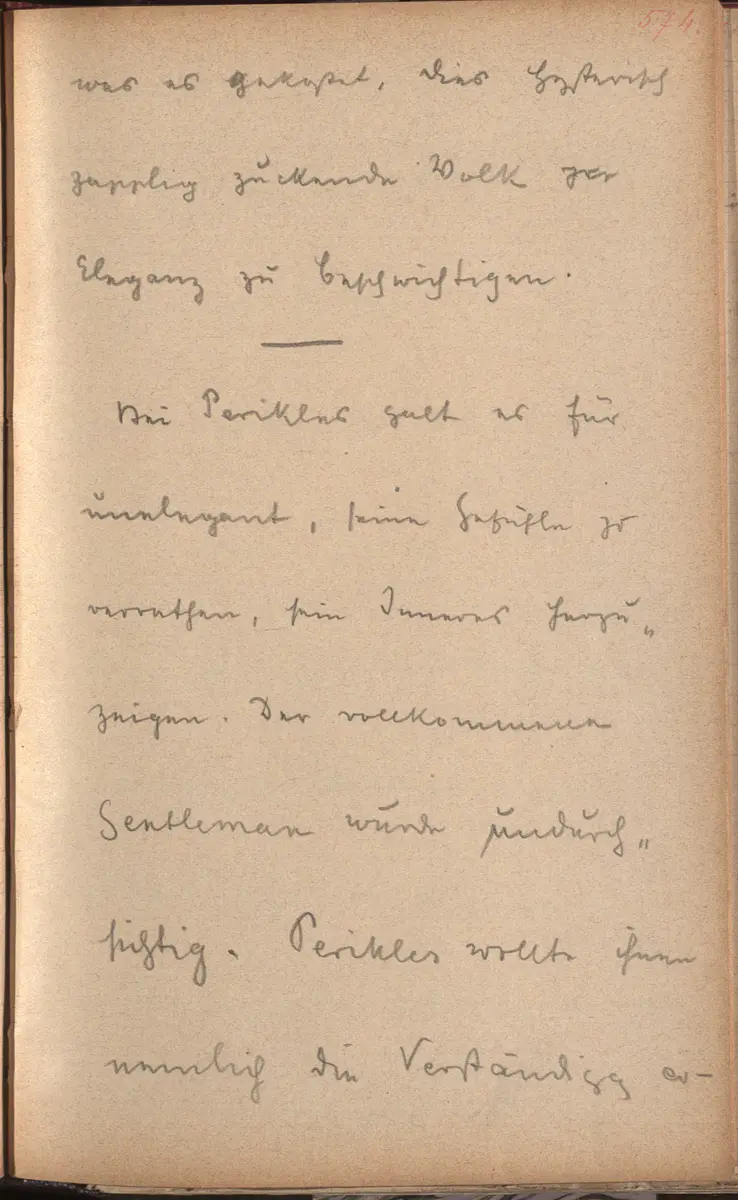 574.
was es gekostet, dies hysterisch
zapplig zuckende Volk zur
Eleganz zu beschwichtigen.
Bei Perikles galt es für
unelegant, seine Gefühle zu
verrathen, sein Inneres herzu„
zeigen. Der vollkommene
Gentleman wurde undurch„
sichtig. Perikles wollte ihnen
nemlich die Verständigg er–